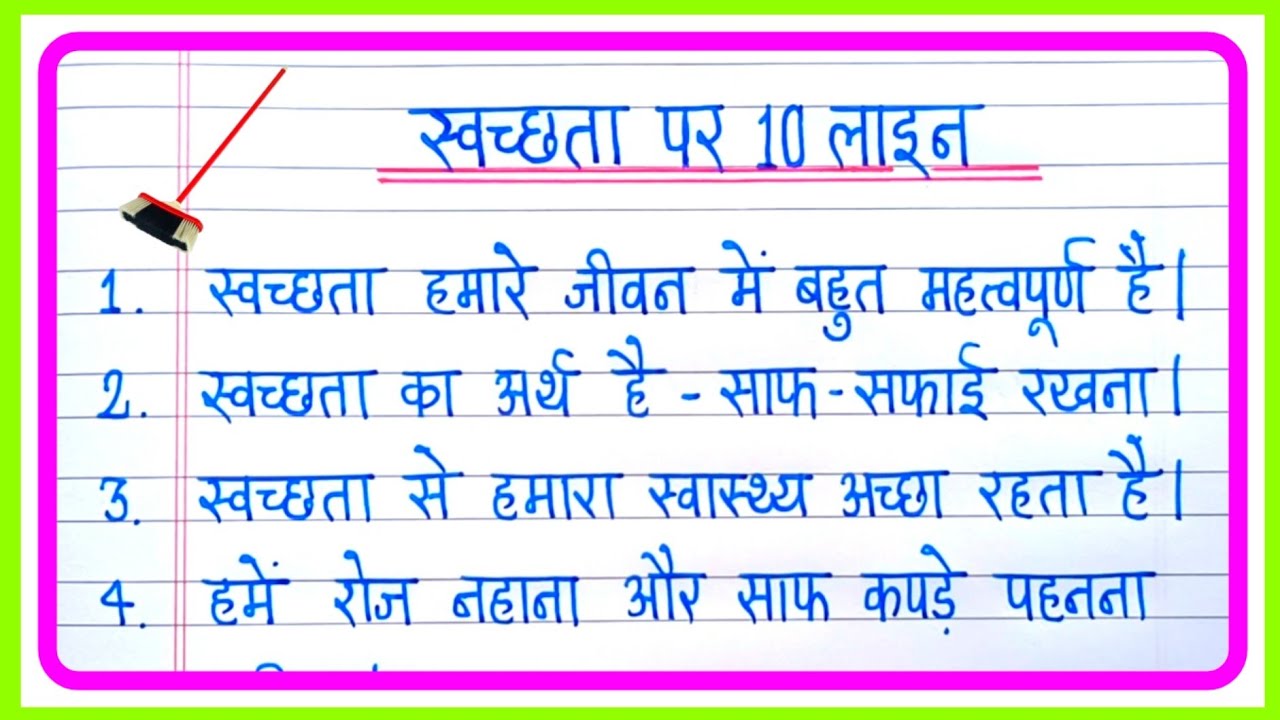 स्वच्छता पर 10 लाइन
1. स्वच्छता हमारे जीवन में बहुत महत्वपूर्ण है।
2. स्वच्छता का अर्थ है - साफ - सफाई रखना।
3. स्वच्छता से हमारा स्वास्थ्य अच्छा रहता है।
4. हमें रोज नहाना और साफ कपड़े पहनना